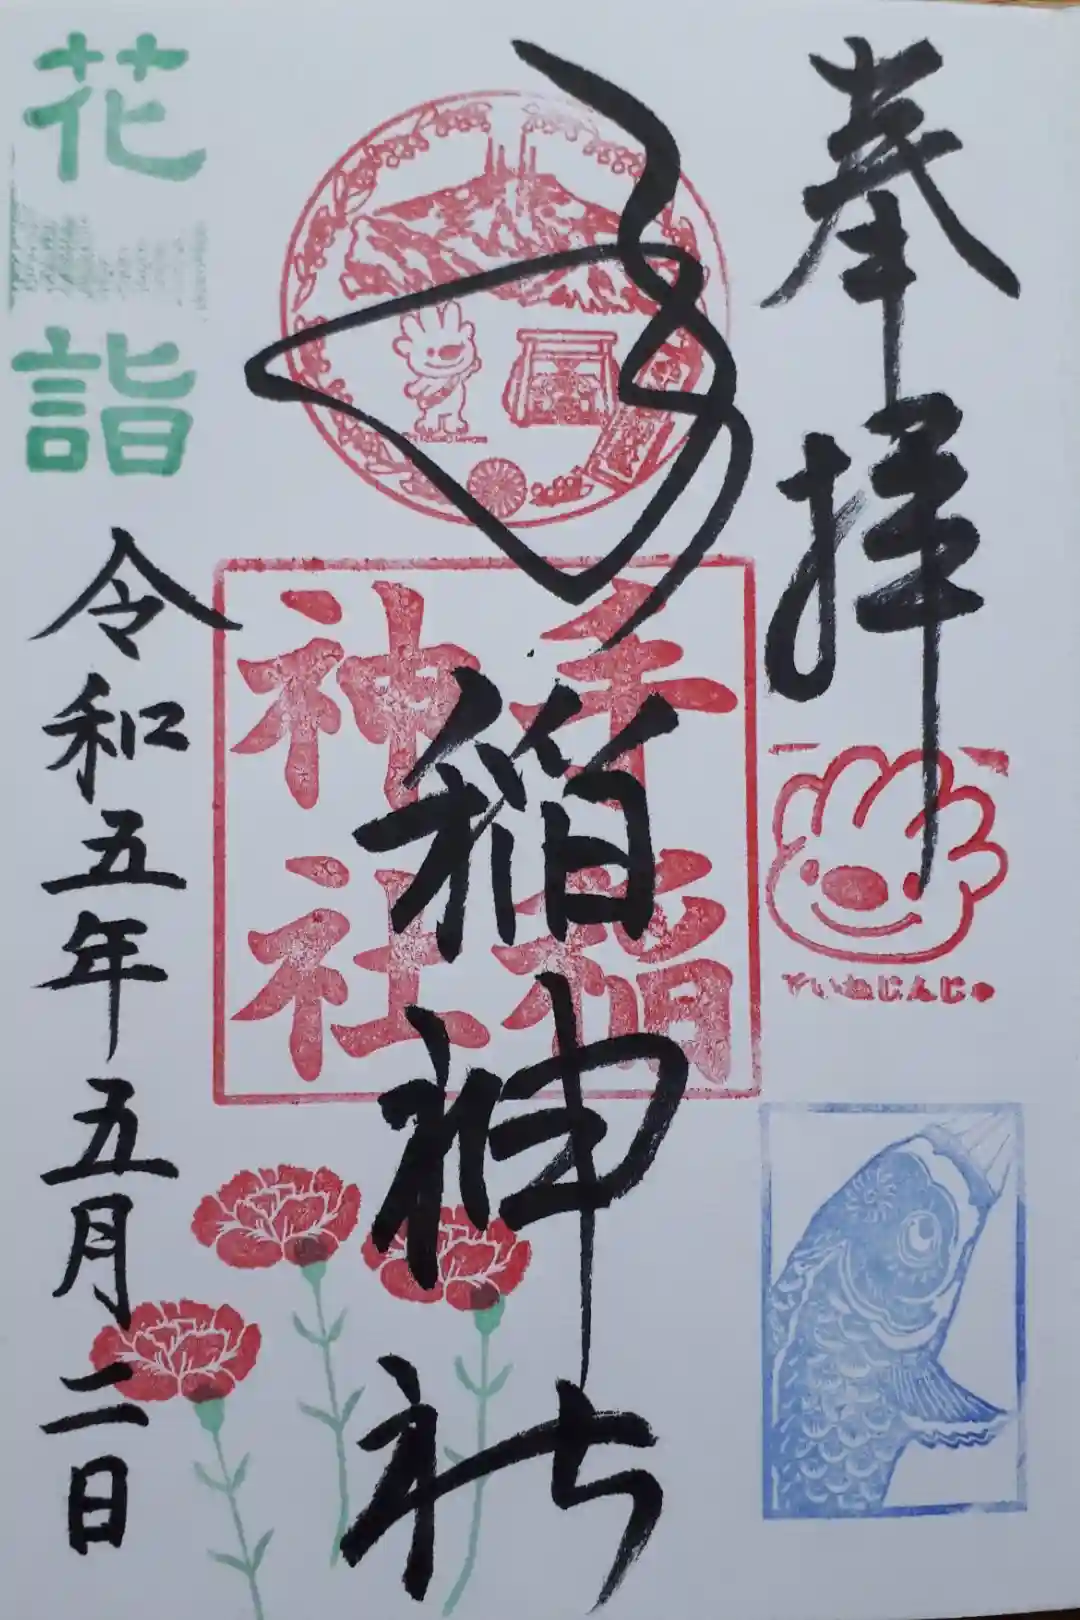 奉拝
ていねじんじゃ
手稲
神社
手稲神社
花詣
令和五年五月二日